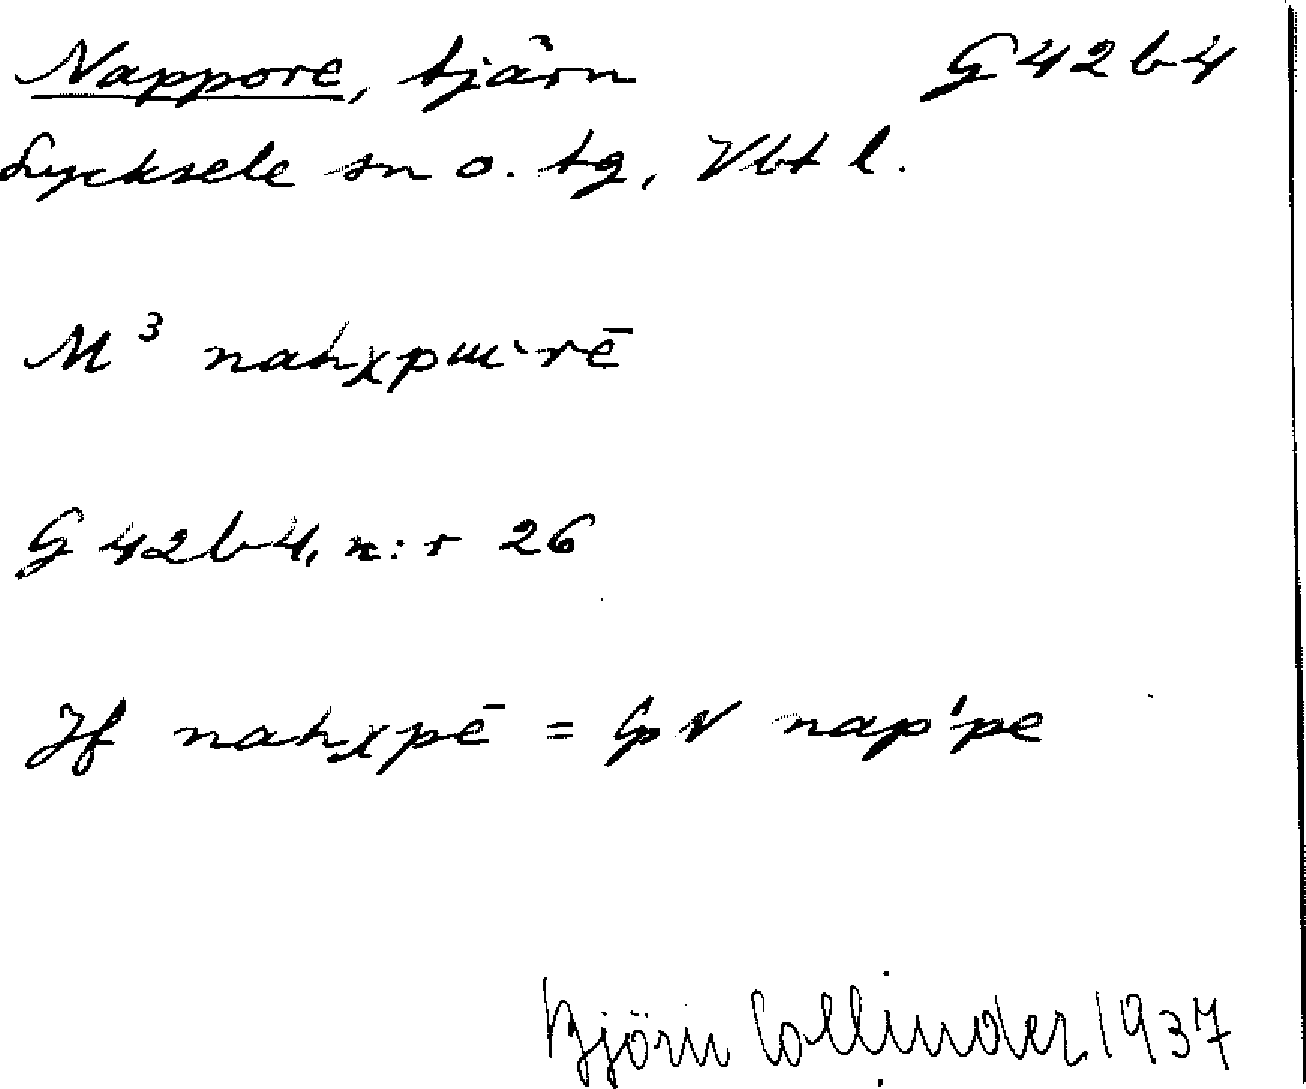 Nappore, tjärn G42b4
Lycksele sn o. tg, Vbt l.
M³ nahχpɯ·rē
G 42b4, n:r 26
Jf nahχpē = lp N nap'pe
Björn Collinder 1937